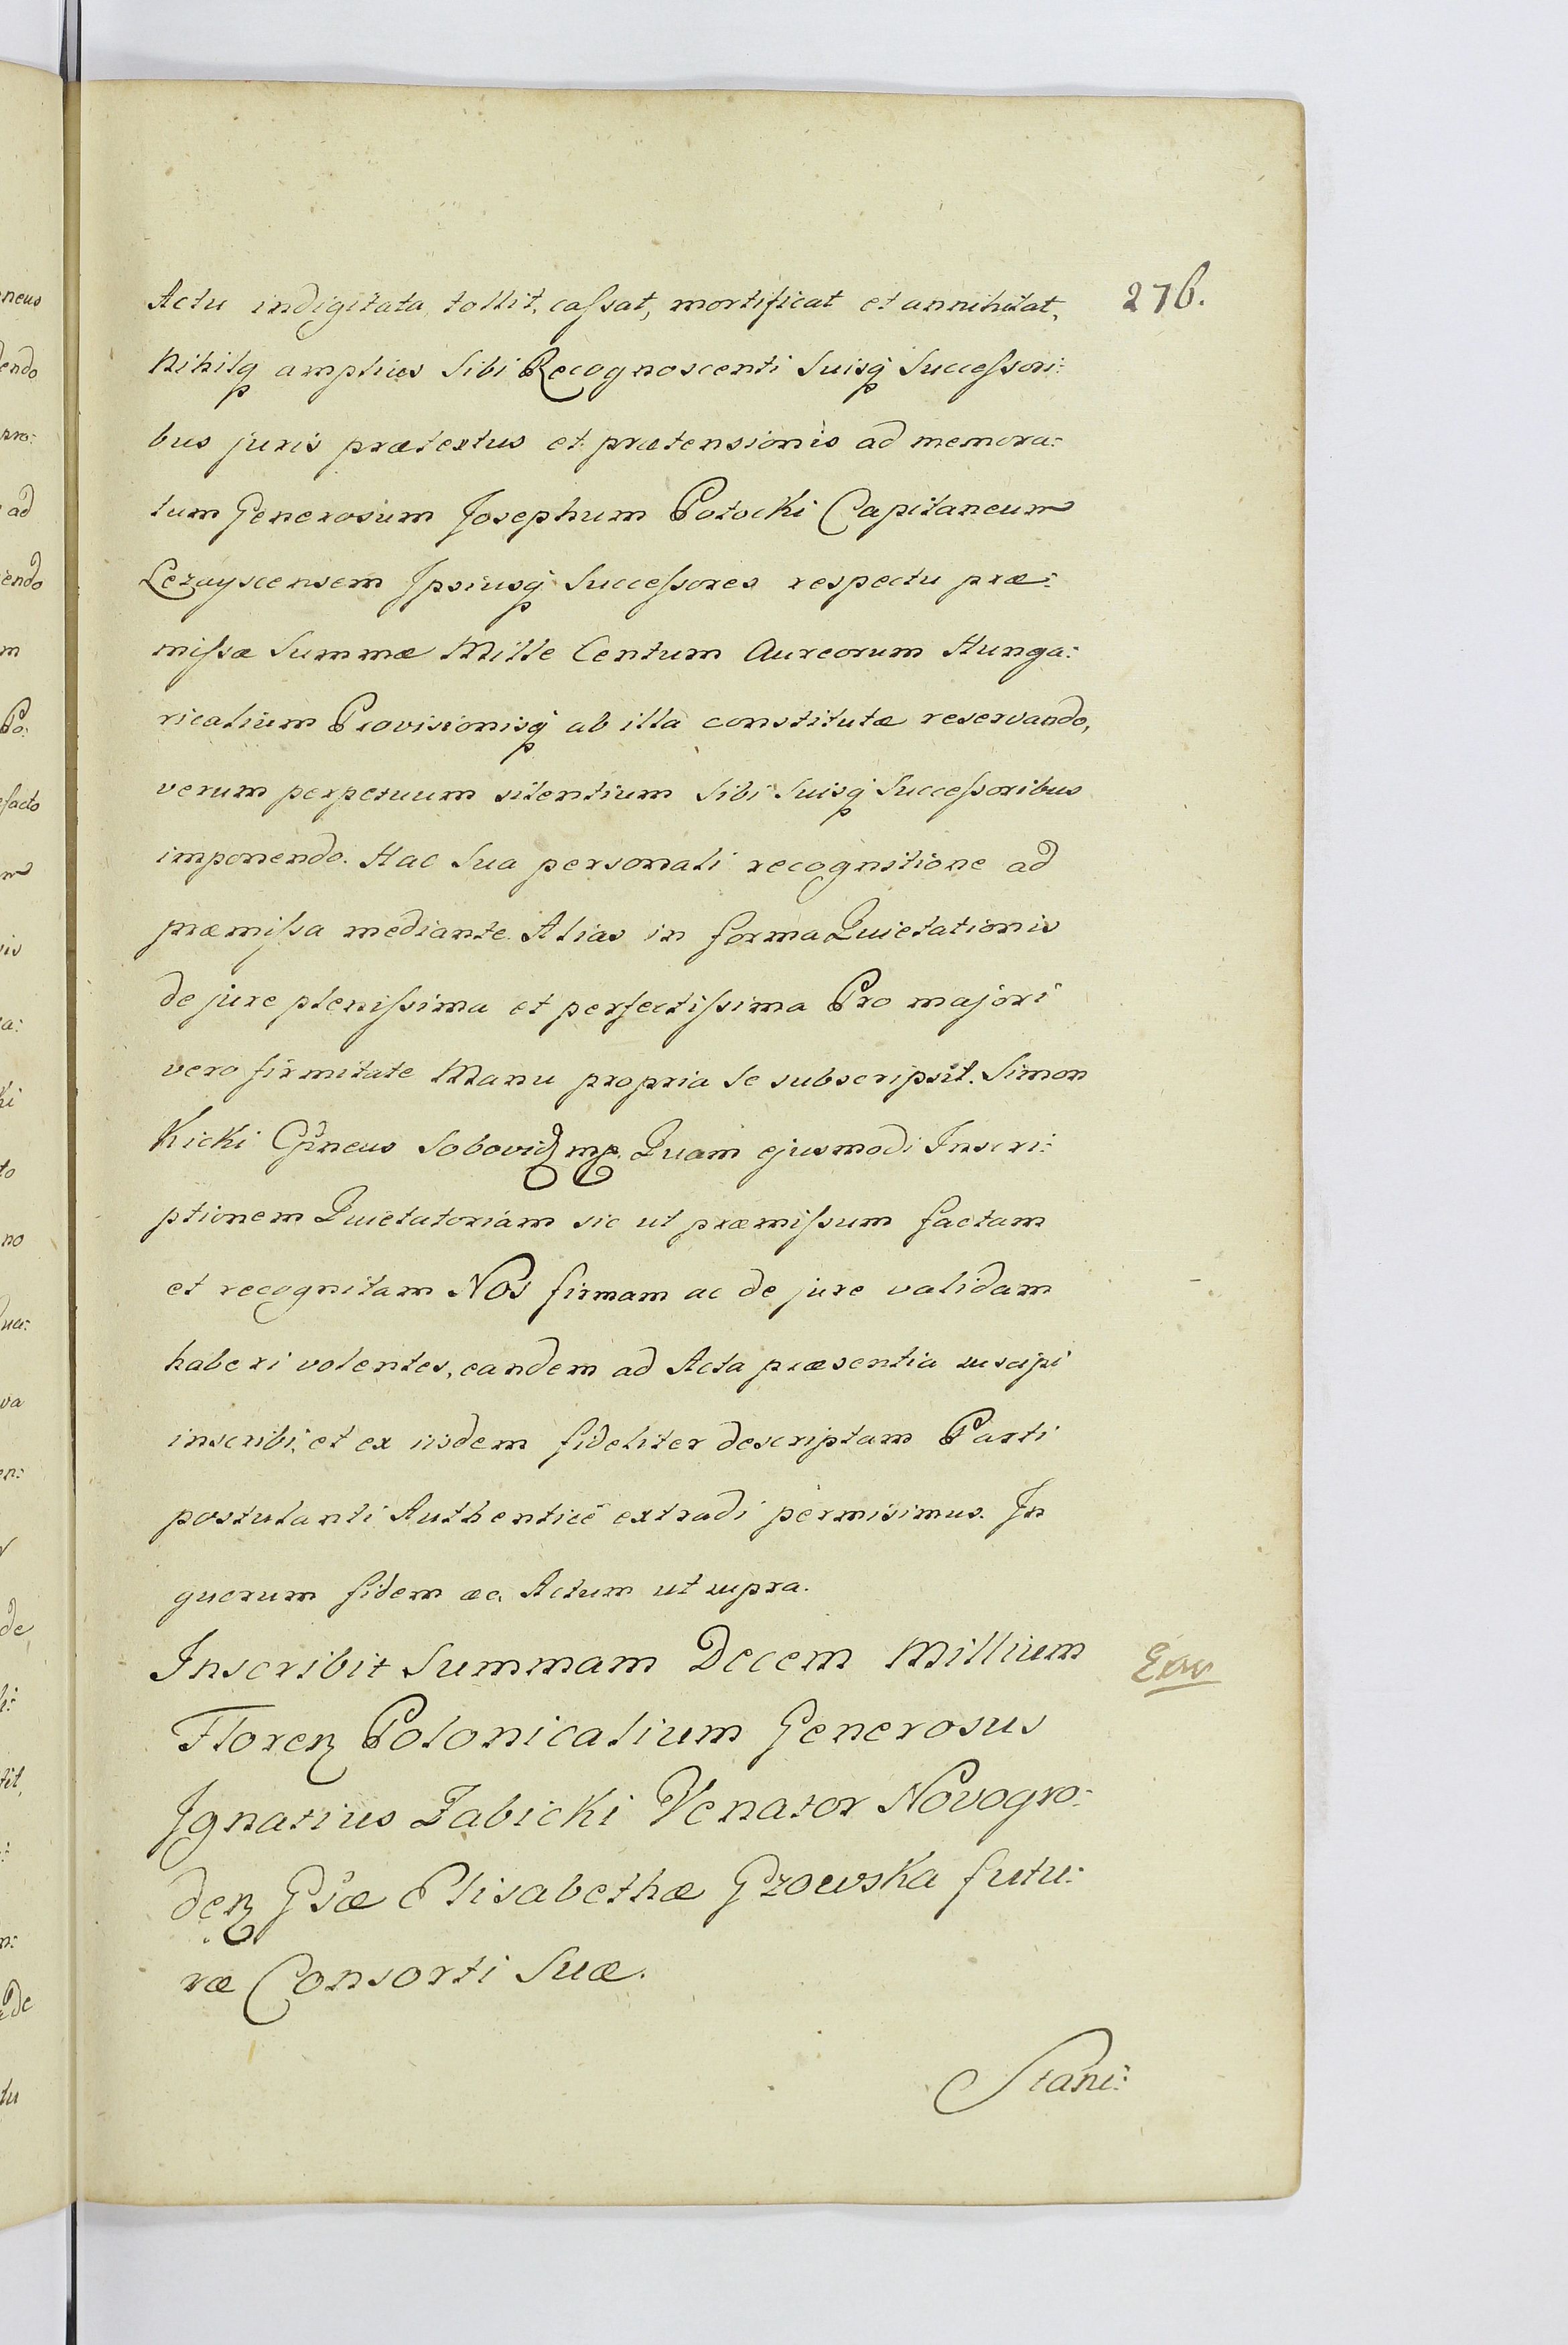 276.
Actu indigitata, tollit, cassat, mortificat et annihilat,
Nihilq amplius Sibi Recognoscenti Suisq Successori:
bus juris prætextus et prætensionis ad memora:
tum Generosum Josephum Potocki Capitaneum
Lezayscensem Ipsiusq Successores respectu præ:
missæ Summæ Mille Centum Aureorum Hunga:
ricalium Provisionisq ab illa constitutæ reservando,
verum perpetuum silentium Sibi Suisq Successoribus
imponendo. Hac Sua personali recognitione ad
præmissa mediante. Alias in forma Quietationis
de jure plenissima et perfectissima Pro majori
vero firmitate Manu propria Se subscripsit. Simon
Kicki Cpneus Sobovien mp. Quam ejusmodi Inscri:
ptionem Quietatoriam sic ut præmissum factam
et recognitam Nos firmam ac de jure validam
haberi volentes, eandem ad Acta præsentia suscipi
inscribi, et ex iisdem fideliter descriptam Parti
postulanti Authenticè extradi permisimus. In
quorum fidem &c. Actum ut supra.
Inscribit Summam Decem Millium
Floren Polonicalium Generosus
Ignatius Zabicki Venator Novogro:
den Gsæ Elisabethæ Gzowska futu:
ræ Consorti Suæ.
Stani: